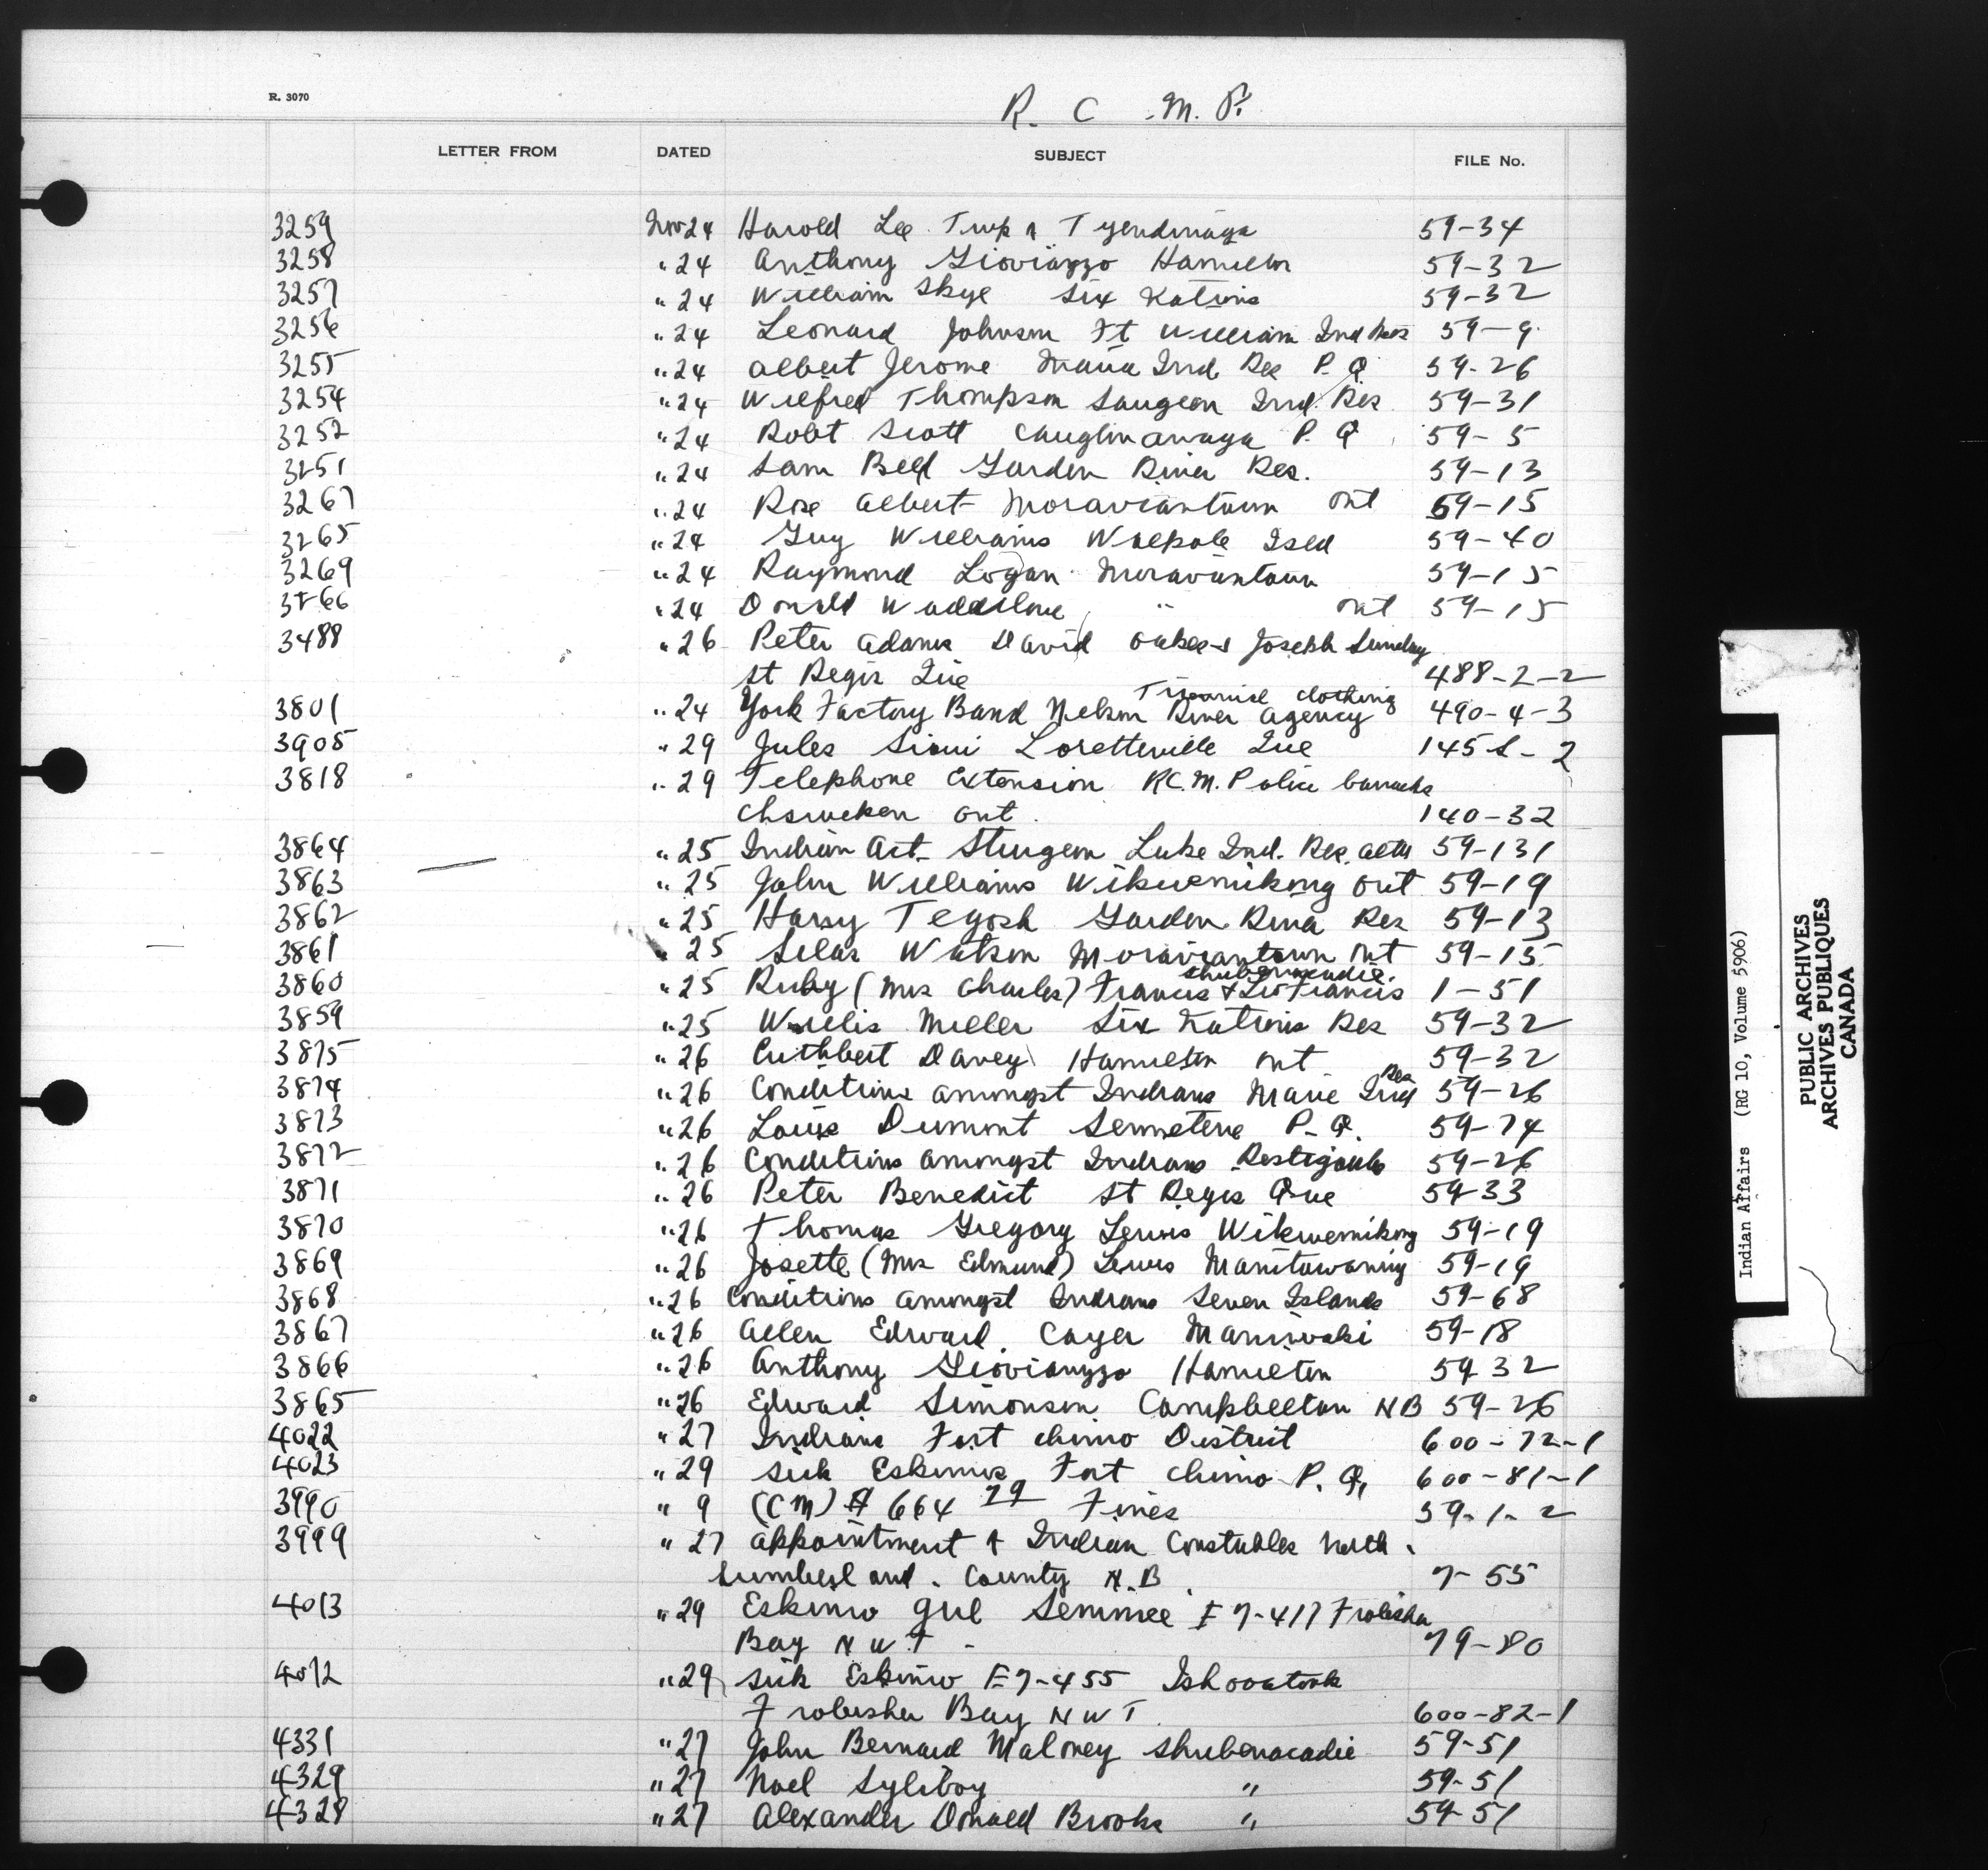 R. 3070
R. C. M. P.
LETTER FROM DATED SUBJECT FILE No.
3259 Nov 24 Harold Lee Twp of Tyendinaga 59-34
3258 " 24 Anthony Gioviazzo Hamilton 59-32
3257 " 24 William Skye Six Nations 59-32
3256 " 24 Leonard Johnson Ft William Ind Res 59-9
3255 " 24 Albert Jerome Maria Ind Res P. Q 59-26
3254 " 24 Wilfred Thompson Saugeen Ind. Res 59-31
3252 " 24 Robt Scott Caughnawaga P. Q 59-5
3251 " 24 Sam Bell Garden River Res. 59-13
3267 " 24 Rose Albert Moraviantown Ont 59-15
3265 " 24 Guy Williams Walpole Isld 59-40
3269 " 24 Raymond Logan Moraviantown 59-15
3266 " 24 Donald Waddilove " Ont 59-15
3488 " 26 Peter Adams David Oakes & Joseph Sunday
St Regis Que 488-2-2
Treaty clothing
3801 " 24 York Factory Band Nelson River Agency 490-4-3
3905 " 29 Jules Sioui Loretteville Que 145 S-2
3818 " 29 Telephone Extension R.C.M. Police barracks
Ohsweken Ont. 140-32
3864 " 25 Indian Act Sturgeon Lake Ind. Res. Alta 59-131
3863 " 25 John Williams Wikwemikong Ont 59-19
3862 " 25 Harry Tegosh Garden River Res 59-13
3861 " 25 Silas Watson Moraviantown Ont 59-15
Shubenacadie.
3860 " 25 Ruby (Mrs Charles) Francis & Leo Francis 1-51
3859 " 25 Willis Miller Six Nations Res 59-32
3875 " 26 Cuthbert Davey Hamilton Ont 59-32
3874 " 26 Conditions amongst Indians Maria Ind Res 59-26
3873 " 26 Louis Dumont Senneterre P. Q. 59-74
3872 " 26 Conditions amongst Indians Restigouche 59-26
3871 " 26 Peter Benedict St Regis Que 59-33
3870 " 26 Thomas Gregory Lewis Wikwemikong 59-19
3869 " 26 Josette (Mrs Edmund) Lewis Manitowaning 59-19
3868 " 26 Conditions amongst Indians Seven Islands 59-68
3867 " 26 Allen Edward Cayer Maniwaki 59-18
3866 " 26 Anthony Giovianzzo Hamilton 59 32
3865 " 26 Edward Simonson Campbellton NB 59-26
4022 " 27 Indians Fort Chimo District 600-72-1
4023 " 29 Sick Eskimos Fort Chimo P. Q, 600-81-1
3990 " 9 (CM) $ 664 79 Fines 59-1-2
3999 " 27 Appointment of Indian Constables North
humberland County N.B. 7-55
4013 " 29 Eskimo girl Semmee E 7-417 Frobisher
Bay N W T - 79-80
4012 " 29 Sick Eskimo E7-455 Ishooatook
Frobisher Bay N W T 600-82-1
4331 " 27 John Bernard Maloney Shubenacadie 59-51
4329 " 27 Noel Syliboy " 59-51
4328 " 27 Alexander Donald Brooks " 59-51
Indian Affairs (RG 10, Volume 5906)
PUBLIC ARCHIVES
ARCHIVES PUBLIQUES
CANADA